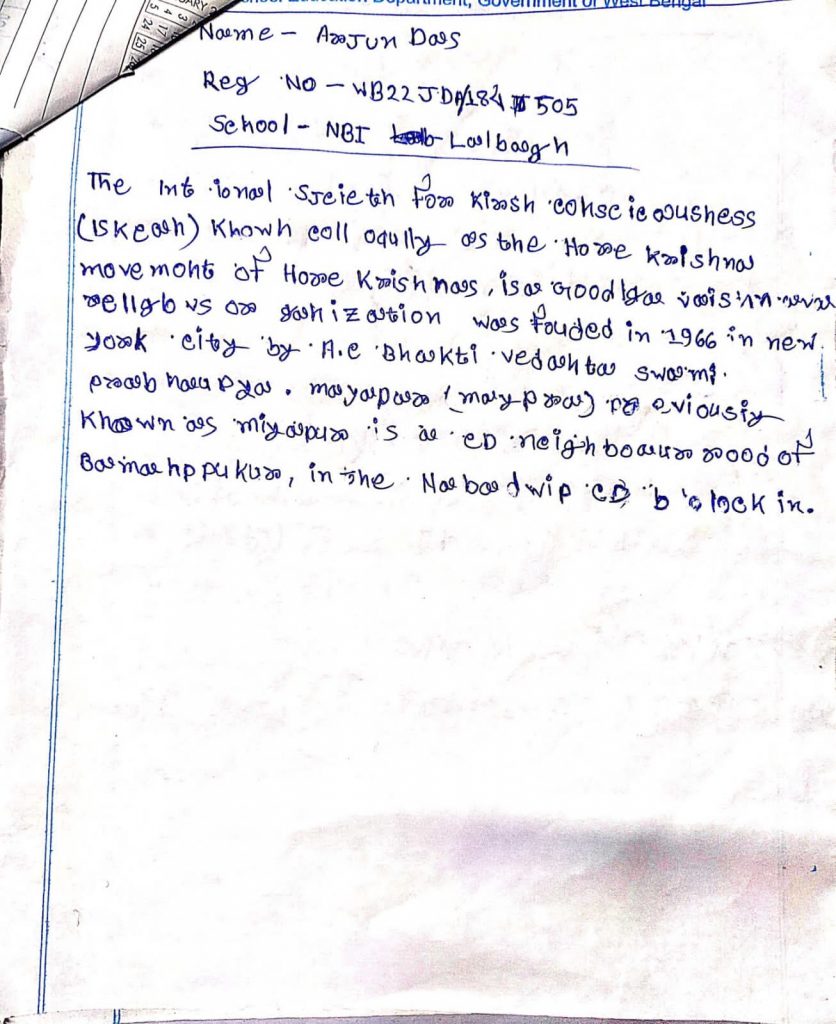 School Education Department, Government of West Bengal
Name - Arjun Das
Reg No - WB22JDA/184 505
School - NBI Lalbagh
The Int ional Sycieth For Kirsh cohsc ie oushess
(ISKcah) Khowh coll oqully as the Hore Krishna
movemoht of Hore Krishnas, is a Goodiya vaishnava
religbus or gahization was fouded in 1966 in new
york city by A.C Bhakti vedahta swami.
prabhaupya. mayapur (maypra) preeviousiy
Khaown as miyapur is a CD neighbouur rood of
Bamahppukur, in the Nabadwip CD b lock in.